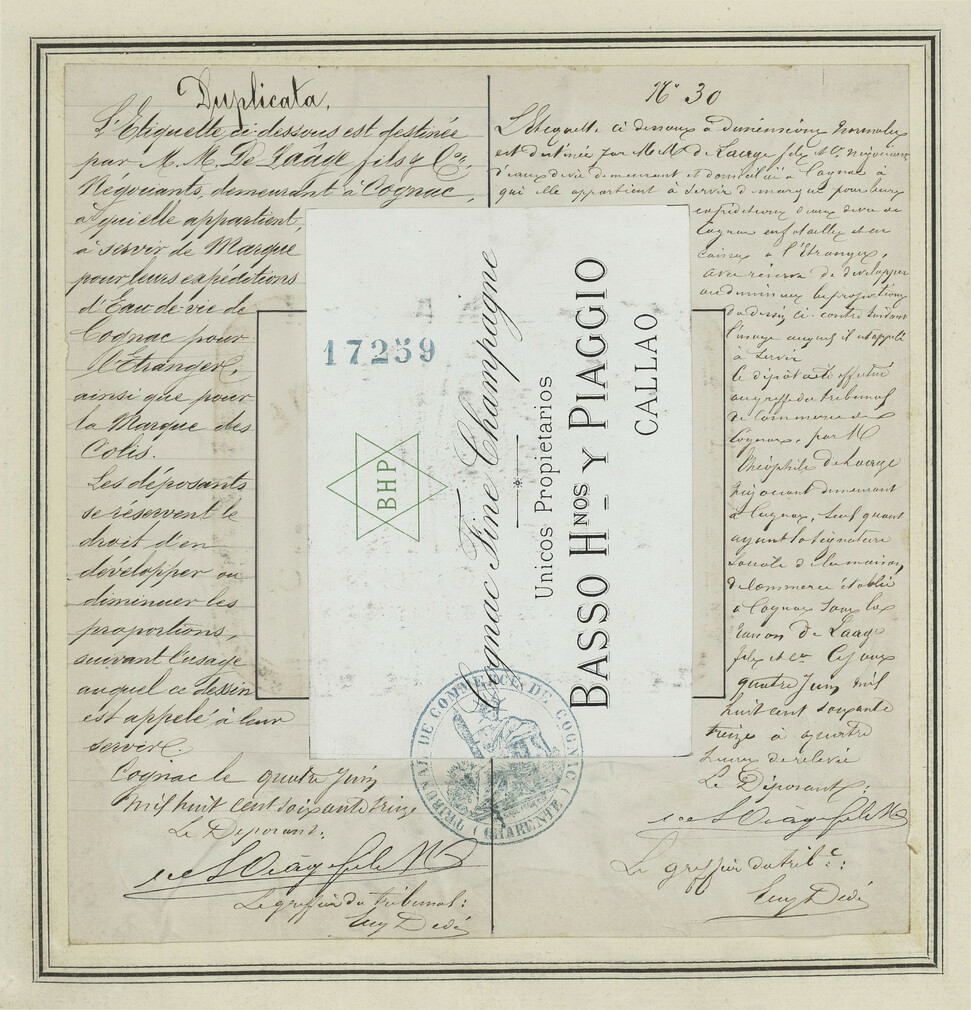 Duplicata.
L'Etiquette ci-dessous est destinée
par M. M. De Laâge fils & Cie,
Négociants, demeurant à Cognac,
à qui elle appartient,
à servir de Marque
pour leurs expéditions
d'Eau de vie de
Cognac pour
l'Étranger,
ainsi que pour
la Marque des
Colis.
Les déposants
se réservent le
droit d'en
developper ou
diminuer les
proportions,
suivant l'usage
auquel ce dessin
est appelé à leur
servir.
Cognac le quatre Juin
Mil huit cent soixante treize
Le Déposant:
Le greffier du tribunal:
17259
BHP
Cognac Fine Champagne
Unicos Propietarios
BASSO HNOS Y PIAGGIO
CALLAO
TRIBUNAL DE COMMERCE DE COGNAC (CHARENTE)
No 30
L'étiquette ci dessous à dimensions normales
est destinée par MM de Laage fils et Cie négociants
d'eaux de vie demeurant et domiciliés à Cognac à
qui elle appartient à servir de marque pour leurs
expéditions d'eaux de vie de
Cognac en futailles et en
caisses à l'Etranger,
avec réserve de developper
ou diminuer les proportions
du dessin ci-contre suivant
l'usage auquel il est appelé
à servir
le dépôt a été effectué
au greffe du tribunal
de Commerce de
Cognac, par M
Théophile de Laage
négociant demeurant
à Cognac, seul gérant
ayant la signature
sociale de la maison
de Commerce établie
à Cognac sous la
raison de Laage
fils et Cie Ce jour
quatre Juin mil
huit cent soixante
treize à quatre
heures de relevée
Le Déposant:
Le greffier du tribal: